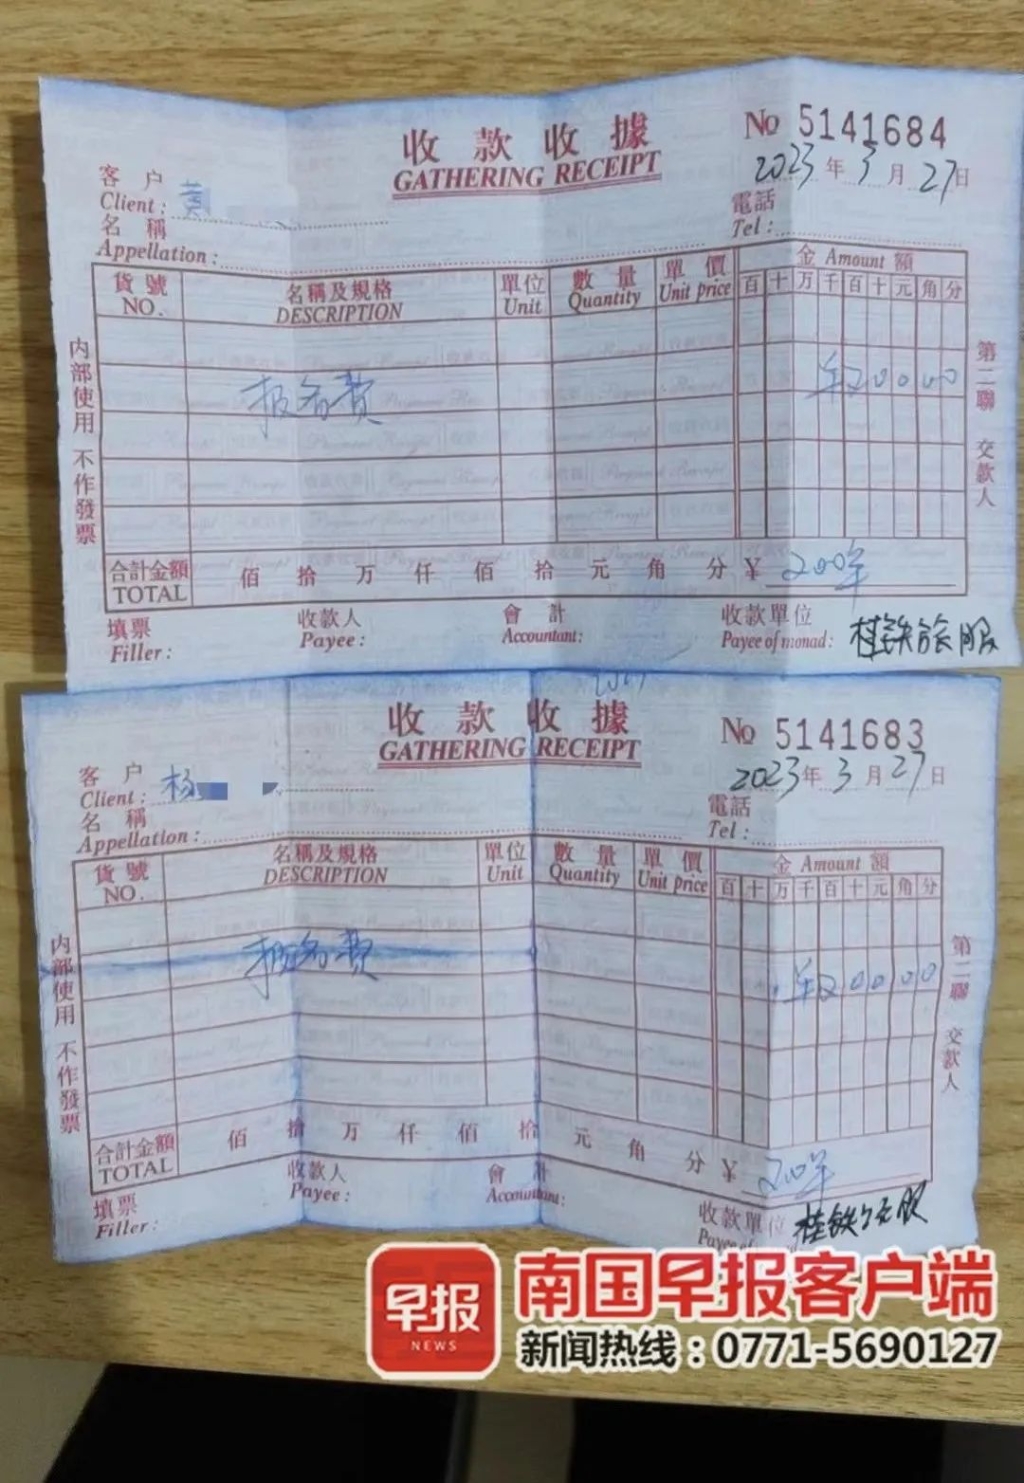 收款收據
GATHERING RECEIPT
No 5141684
2023年3月27日
客户
Client: 黄
名稱
Appellation:
電話
Tel:
貨號
NO.
名稱及規格
DESCRIPTION
單位
Unit
數量
Quantity
單價
Unit price
金 Amount 額
百十万千百十元角分
报名费
20000
内部使用 不作發票
第二聯 交款人
合計金額
TOTAL
佰 拾 万 仟 佰 拾 元 角 分 ¥ 200
填票
Filler:
收款人
Payee:
會計
Accountant:
收款單位
Payee of monad: 桂铁旅服
收款收據
GATHERING RECEIPT
No 5141683
2023年3月27日
客户
Client: 杨
名稱
Appellation:
電話
Tel:
貨號
NO.
名稱及規格
DESCRIPTION
單位
Unit
數量
Quantity
單價
Unit price
金 Amount 額
百十万千百十元角分
报名费
20000
内部使用 不作發票
第二聯 交款人
合計金額
TOTAL
佰 拾 万 仟 佰 拾 元 角 分 ¥ 200
填票
Filler:
收款人
Payee:
會計
Accountant:
收款單位
桂铁旅服
早报
NEWS
南国早报客户端
新闻热线：0771-5690127